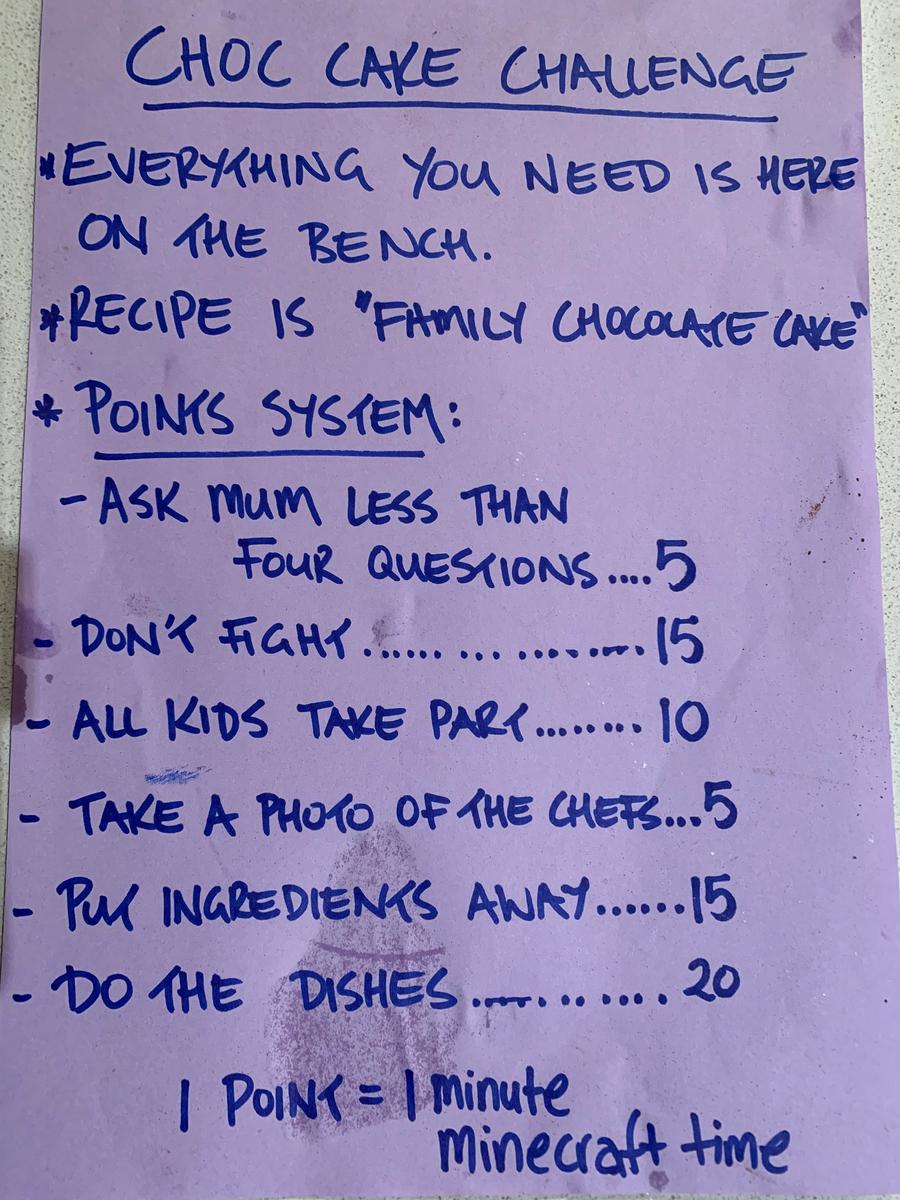 CHOC CAKE CHALLENGE
* EVERYTHING YOU NEED IS HERE
ON THE BENCH.
* RECIPE IS "FAMILY CHOCOLATE CAKE"
* POINTS SYSTEM:
- ASK MUM LESS THAN
FOUR QUESTIONS....5
- DON'T FIGHT..................15
- ALL KIDS TAKE PART........10
- TAKE A PHOTO OF THE CHEFS...5
- PUT INGREDIENTS AWAY......15
- DO THE DISHES.............20
1 POINT = 1 minute
minecraft time